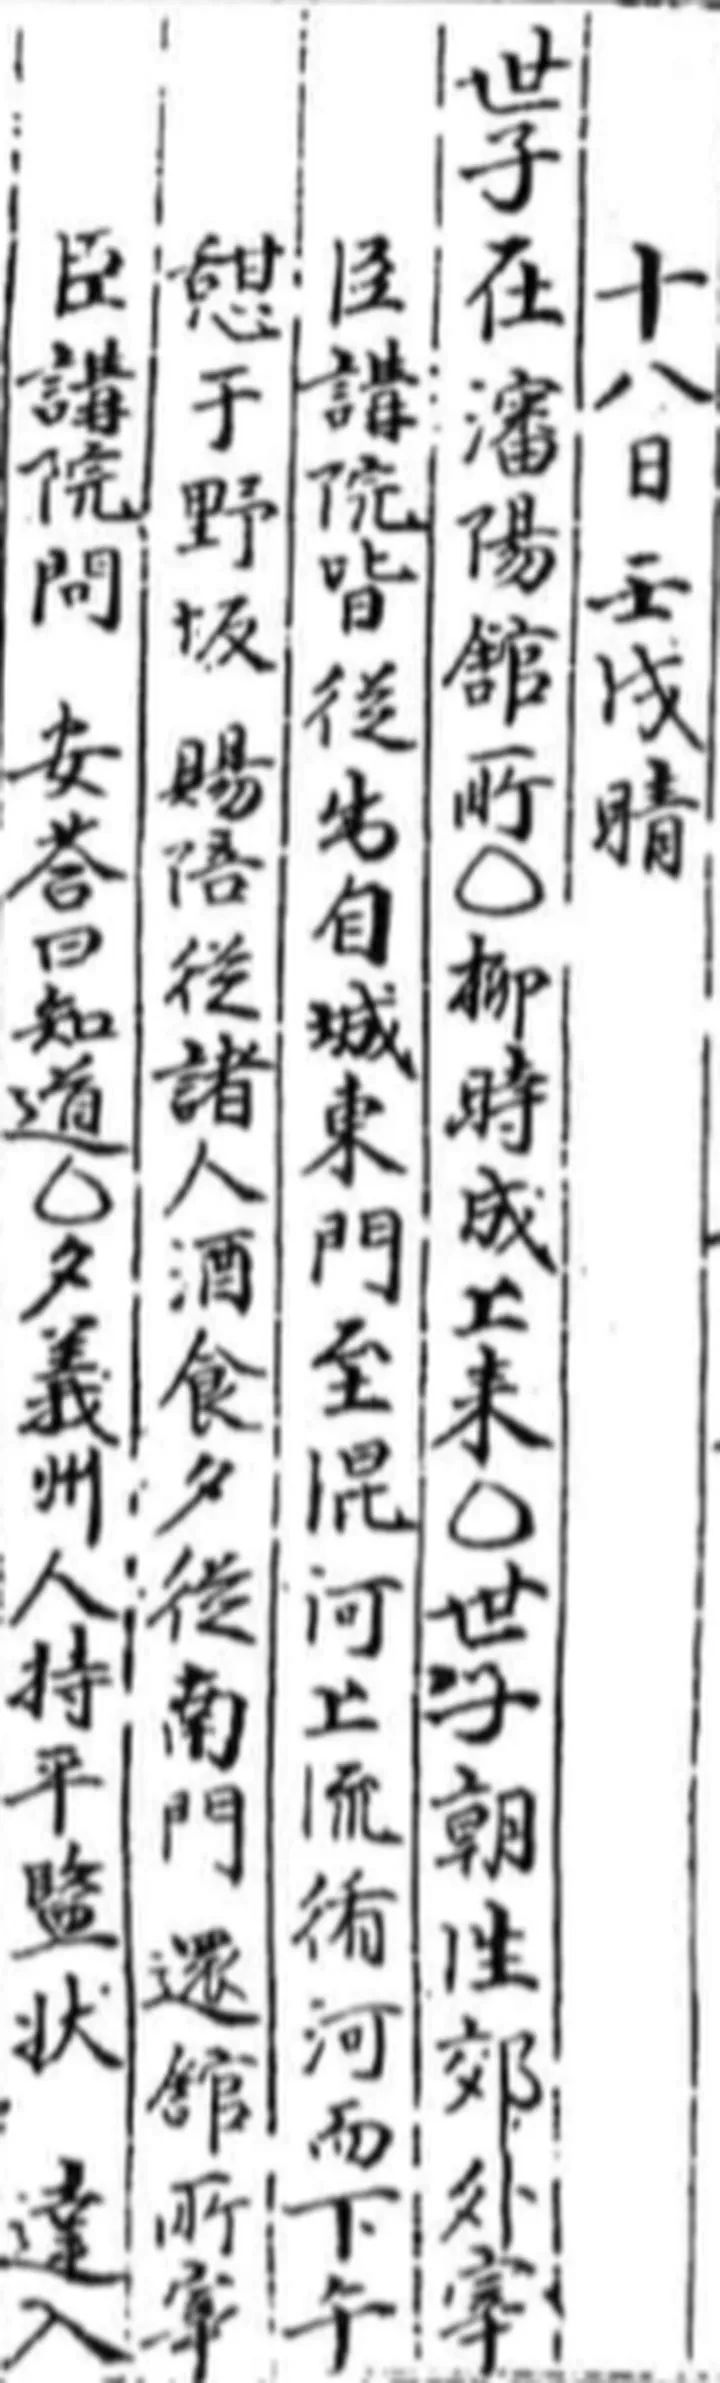 十八日壬戌晴
世子在瀋陽舘所○柳時成上来○世子朝往郊外宰
臣講院皆從出自城東門至混河上流循河而下午
憇于野坂賜陪從諸人酒食夕從南門還舘所宰
臣講院問安答曰知道○夕義州人持平監状達入